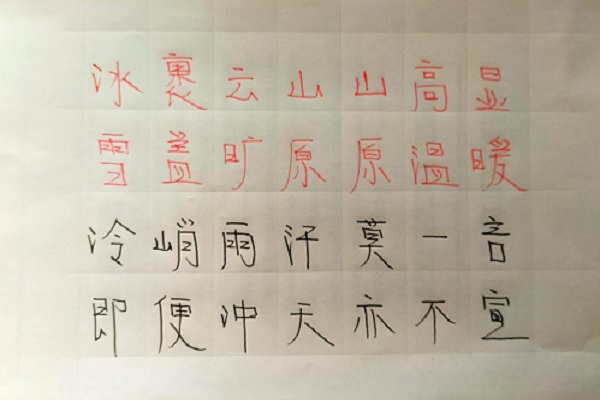 冰裹云山山高显
雪盖旷原原温暖
冷峭雨汗莫一言
即便冲天亦不宣